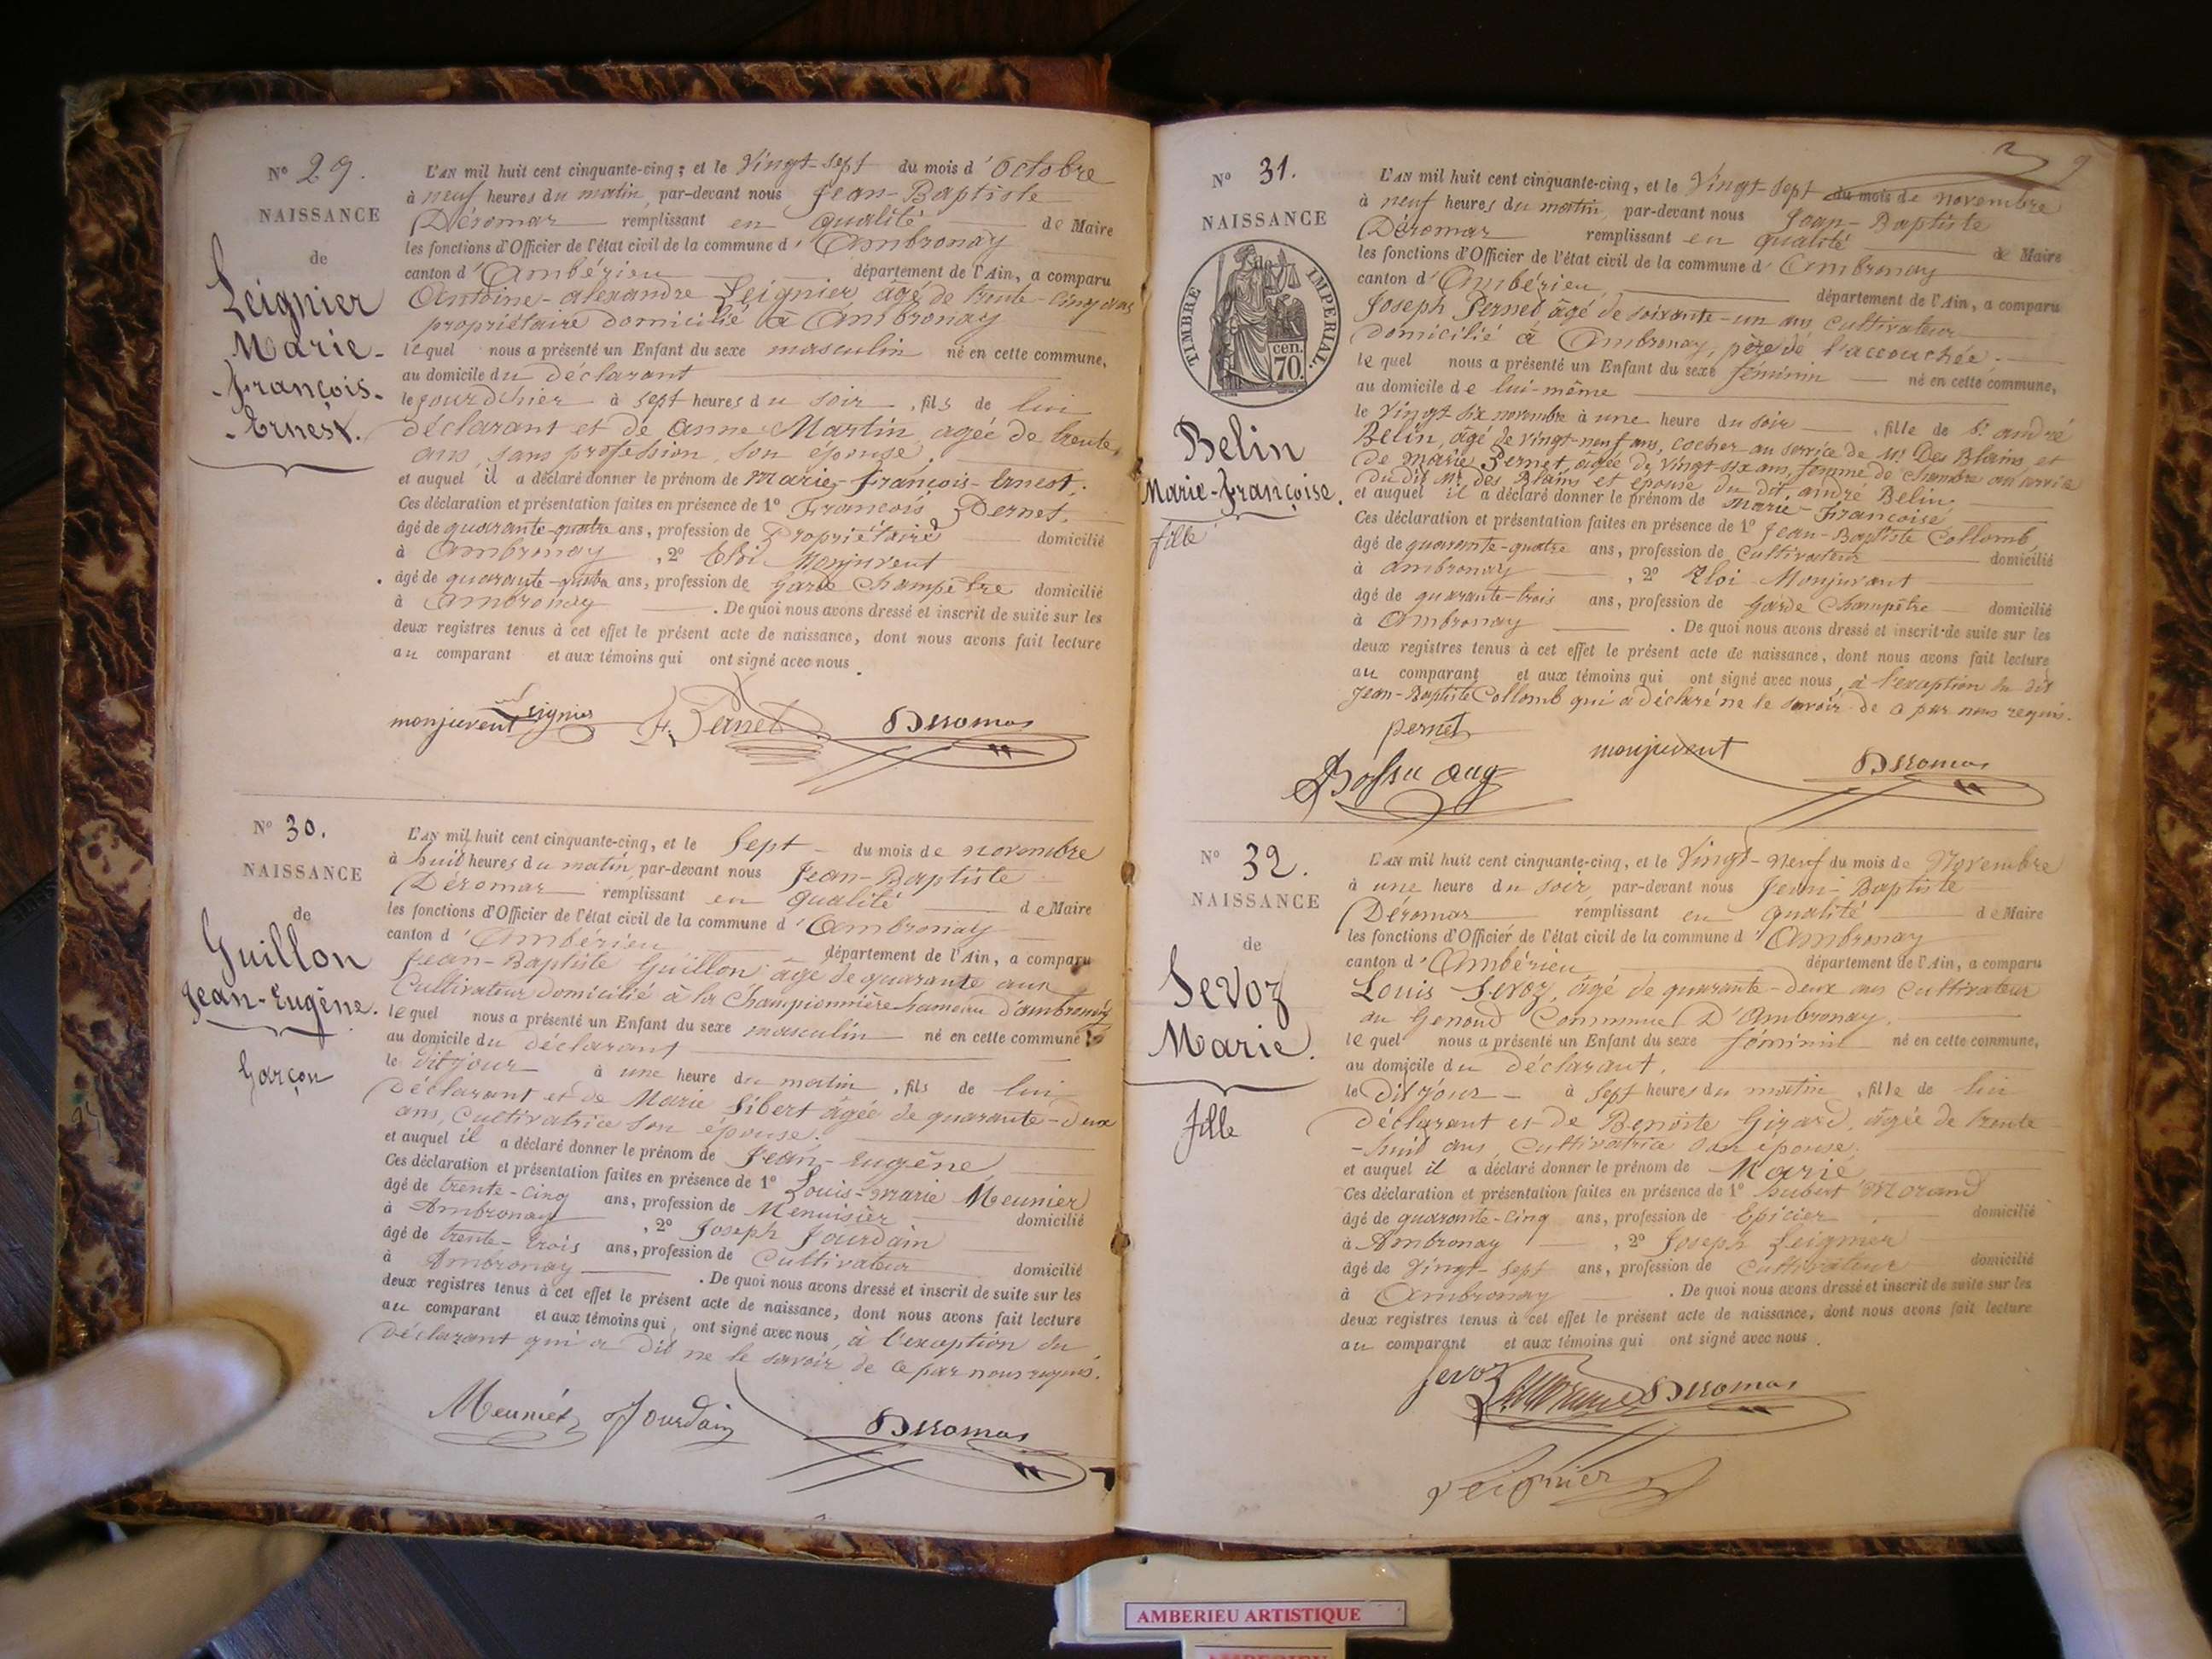 N° 29.
NAISSANCE
de
Leignier
Marie-
François-
Ernest.
L'AN mil huit cent cinquante-cinq ; et le Vingt-sept du mois d'Octobre
à neuf heures du matin, par-devant nous Jean-Baptiste
Déromas remplissant en qualité de Maire
les fonctions d'Officier de l'état civil de la commune d'Ambronay
canton d'Ambérieu département de l'Ain, a comparu
Antoine-alexandre Leignier, âgé de trente-cinq ans
propriétaire domicilié à Ambronay
lequel nous a présenté un Enfant du sexe masculin né en cette commune,
au domicile du déclarant
le jour d'hier à sept heures du soir, fils de lui
déclarant et de anne Martin, agée de trente
ans, sans profession, son épouse.
et auquel il a déclaré donner le prénom de Marie-François-Ernest.
Ces déclaration et présentation faites en présence de 1° François Pernet.
âgé de quarante-quatre ans, profession de Propriétaire domicilié
à Ambronay, 2° Eloi Monjuvent
âgé de quarante-quatre ans, profession de garde Champêtre domicilié
à Ambronay. De quoi nous avons dressé et inscrit de suite sur les
deux registres tenus à cet effet le présent acte de naissance, dont nous avons fait lecture
au comparant et aux témoins qui ont signé avec nous.
monjuvent Leignier F. Pernet Déromas
N° 30.
NAISSANCE
de
Guillon
Jean-Eugène.
Garçon
L'AN mil huit cent cinquante-cinq, et le Sept du mois de novembre
à huit heures du matin, par-devant nous Jean-Baptiste
Déromas remplissant en qualité de Maire
les fonctions d'Officier de l'état civil de la commune d'Ambronay
canton d'Ambérieu département de l'Ain, a comparu
Jean-Baptiste Guillon âgé de quarante ans
Cultivateur domicilié à la Championnière hameau d'ambronay
lequel nous a présenté un Enfant du sexe masculin né en cette commune
au domicile du déclarant
le dit jour à une heure du matin, fils de lui
déclarant et de Marie Sibert âgée de quarante-deux
ans, Cultivatrice son épouse.
et auquel il a déclaré donner le prénom de Jean-Eugène
Ces déclaration et présentation faites en présence de 1° Louis-marie Meunier
âgé de trente-cinq ans, profession de Menuisier domicilié
à Ambronay, 2° Joseph Jourdain
âgé de trente-trois ans, profession de Cultivateur domicilié
à Ambronay. De quoi nous avons dressé et inscrit de suite sur les
deux registres tenus à cet effet le présent acte de naissance, dont nous avons fait lecture
au comparant et aux témoins qui ont signé avec nous, à l'exception du
déclarant qui a dit ne le savoir de ce par nous requis.
Meunier Jourdain Déromas
9
N° 31.
NAISSANCE
de
TIMBRE IMPERIAL.
cen.
70.
Belin
Marie-Françoise.
fille
L'AN mil huit cent cinquante-cinq, et le Vingt-sept du mois de novembre
à neuf heures du matin, par-devant nous Jean-Baptiste
Déromas remplissant en qualité de Maire
les fonctions d'Officier de l'état civil de la commune d'Ambronay
canton d'Ambérieu, département de l'Ain, a comparu
Joseph Pernet âgé de soixante-un ans, cultivateur
domicilié à Ambronay, père de l'accouchée.
lequel nous a présenté un Enfant du sexe féminin né en cette commune,
au domicile de lui-même
le Vingt six novembre à une heure du soir, fille de andré
Belin, âgé de vingt-neuf ans, cocher au service de Mr Des Blains, et
de Marie Pernet, âgée de vingt-six ans, femme de chambre au service
du dit Mr des Blains et épouse du dit andré Belin;
et auquel il a déclaré donner le prénom de Marie-Françoise
Ces déclaration et présentation faites en présence de 1° Jean-Baptiste Collomb,
âgé de quarante-quatre ans, profession de Cultivateur domicilié
à Ambronay, 2° Eloi Monjuvent
âgé de quarante-trois ans, profession de Garde Champêtre domicilié
à Ambronay. De quoi nous avons dressé et inscrit de suite sur les
deux registres tenus à cet effet le présent acte de naissance, dont nous avons fait lecture
au comparant et aux témoins qui ont signé avec nous, à l'exception du dit
Jean-Baptiste Collomb qui a déclaré ne le savoir de ce par nous requis.
pernet
monjuvent Déromas
Bossu aug
N° 32.
NAISSANCE
de
Sevoz
Marie.
fille
L'AN mil huit cent cinquante-cinq, et le Vingt-Neuf du mois de Novembre
à une heure du soir, par-devant nous Jean-Baptiste
Déromas remplissant en qualité de Maire
les fonctions d'Officier de l'état civil de la commune d'Ambronay
canton d'Ambérieu département de l'Ain, a comparu
Louis Sevoz, âgé de quarante-deux ans Cultivateur
au Genoud Commune D'Ambronay.
lequel nous a présenté un Enfant du sexe féminin né en cette commune,
au domicile du déclarant.
le Dit jour à Sept heures du matin, fille de lui
déclarant et de Benoite Girard, âgée de trente
-huit ans, Cultivatrice son épouse.
et auquel il a déclaré donner le prénom de Marie
Ces déclaration et présentation faites en présence de 1° hubert Morand
âgé de quarante-cinq ans, profession de Epicier domicilié
à Ambronay, 2° Joseph Leignier
âgé de Vingt-sept ans, profession de Cultivateur domicilié
à Ambronay. De quoi nous avons dressé et inscrit de suite sur les
deux registres tenus à cet effet le présent acte de naissance, dont nous avons fait lecture
au comparant et aux témoins qui ont signé avec nous.
Sevoz Déromas
Leignier
AMBERIEU ARTISTIQUE